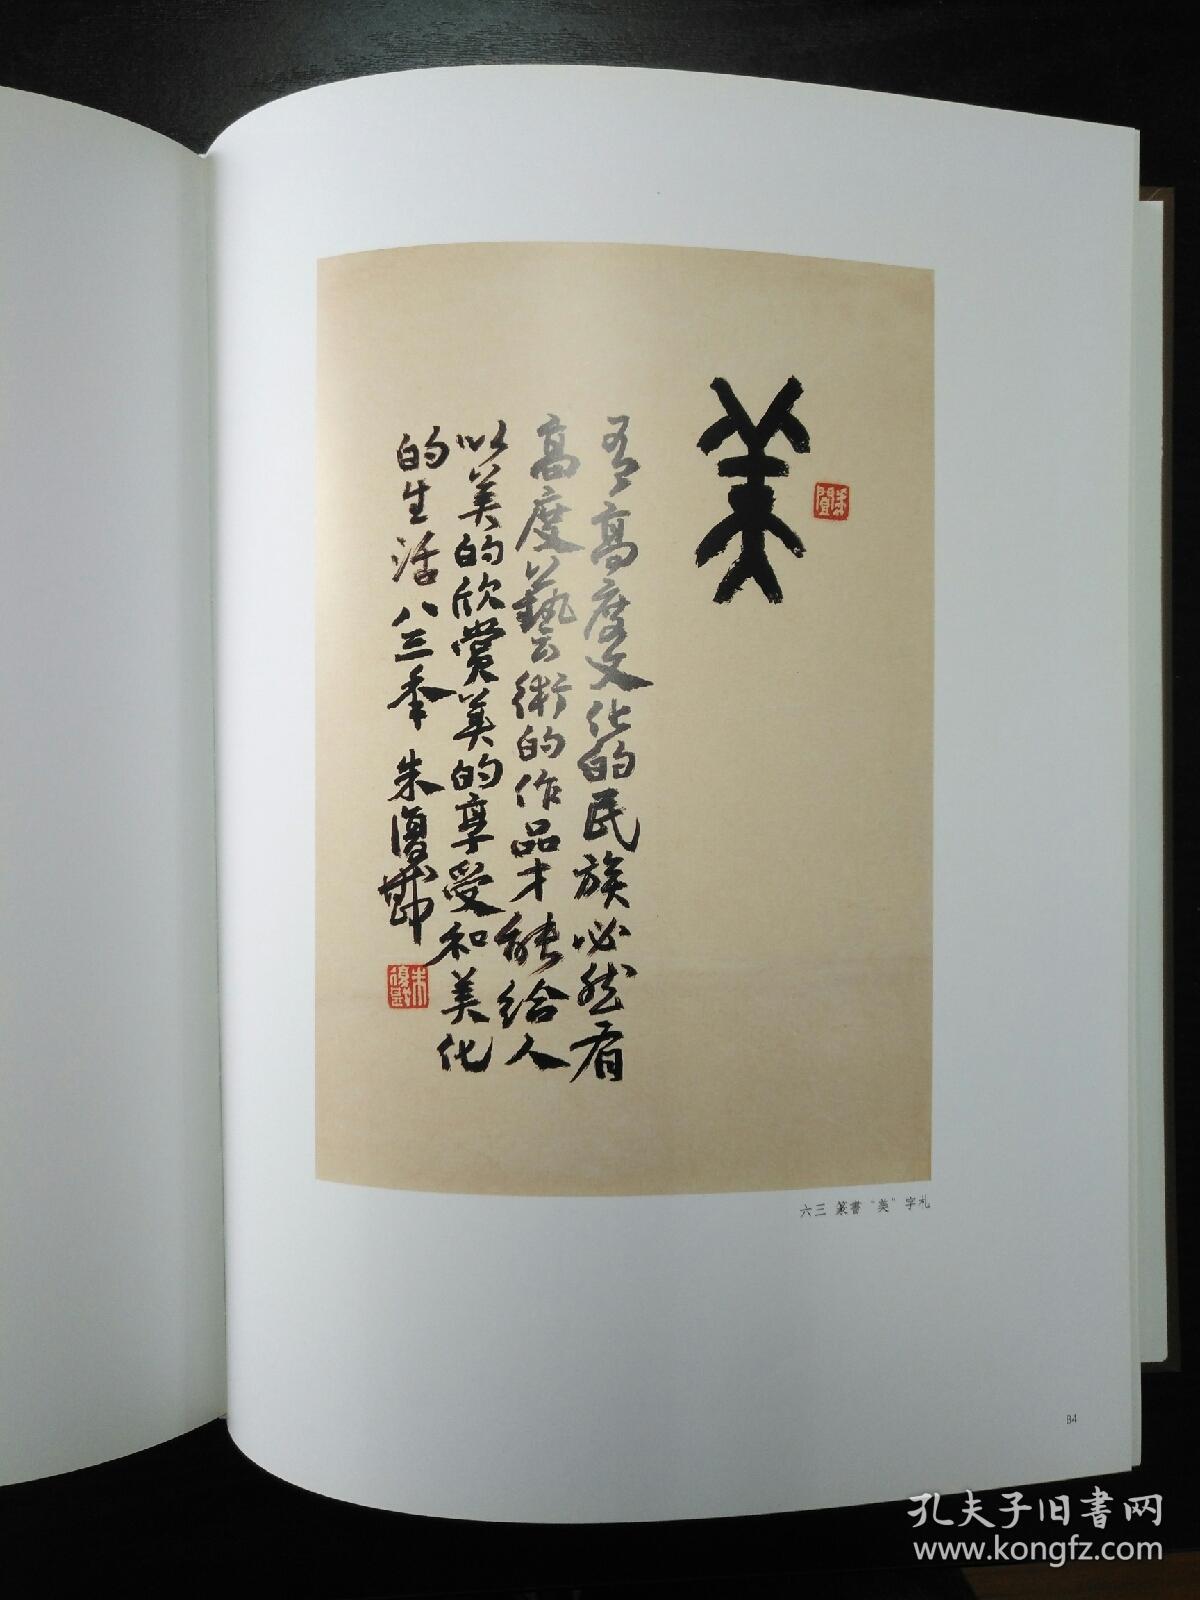 美
有高度文化的民族必然有
高度藝術的作品才能給人
以美的欣賞美的享受和美化
的生活八三年朱復戡
朱復戡
六三 篆書“美”字札
84
孔夫子旧书网
www.kongfz.com